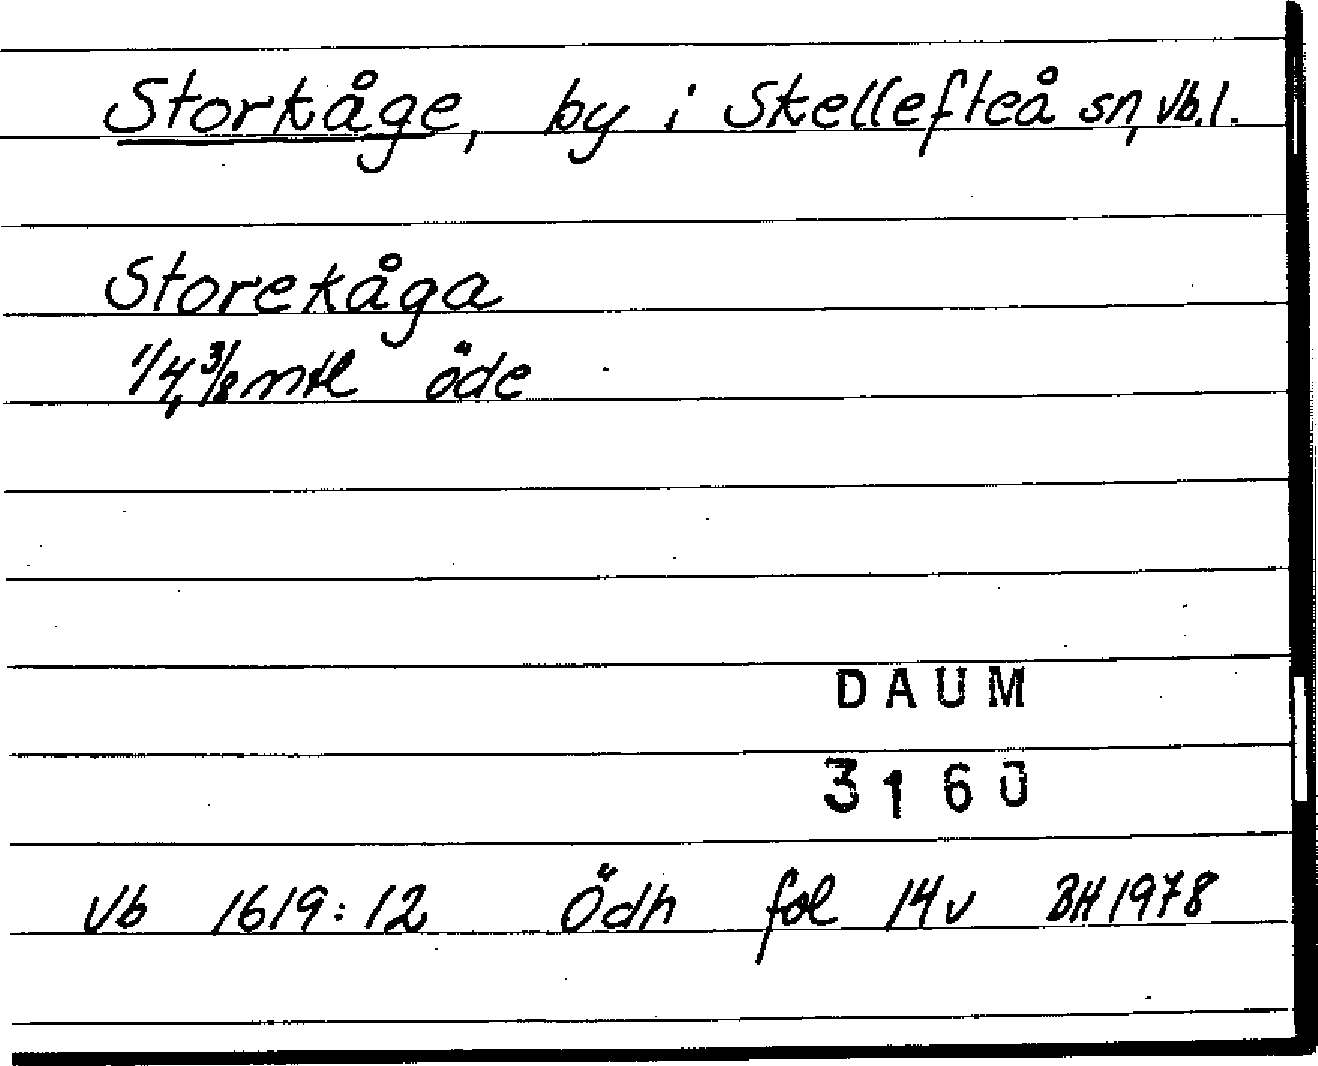 Storkåge, by i Skellefteå sn, Vb.l.
Storekåga
1/4, 3/8 mtl öde
DAUM
3160
Vb 1619:12 Ödh fol 14v BH 1978